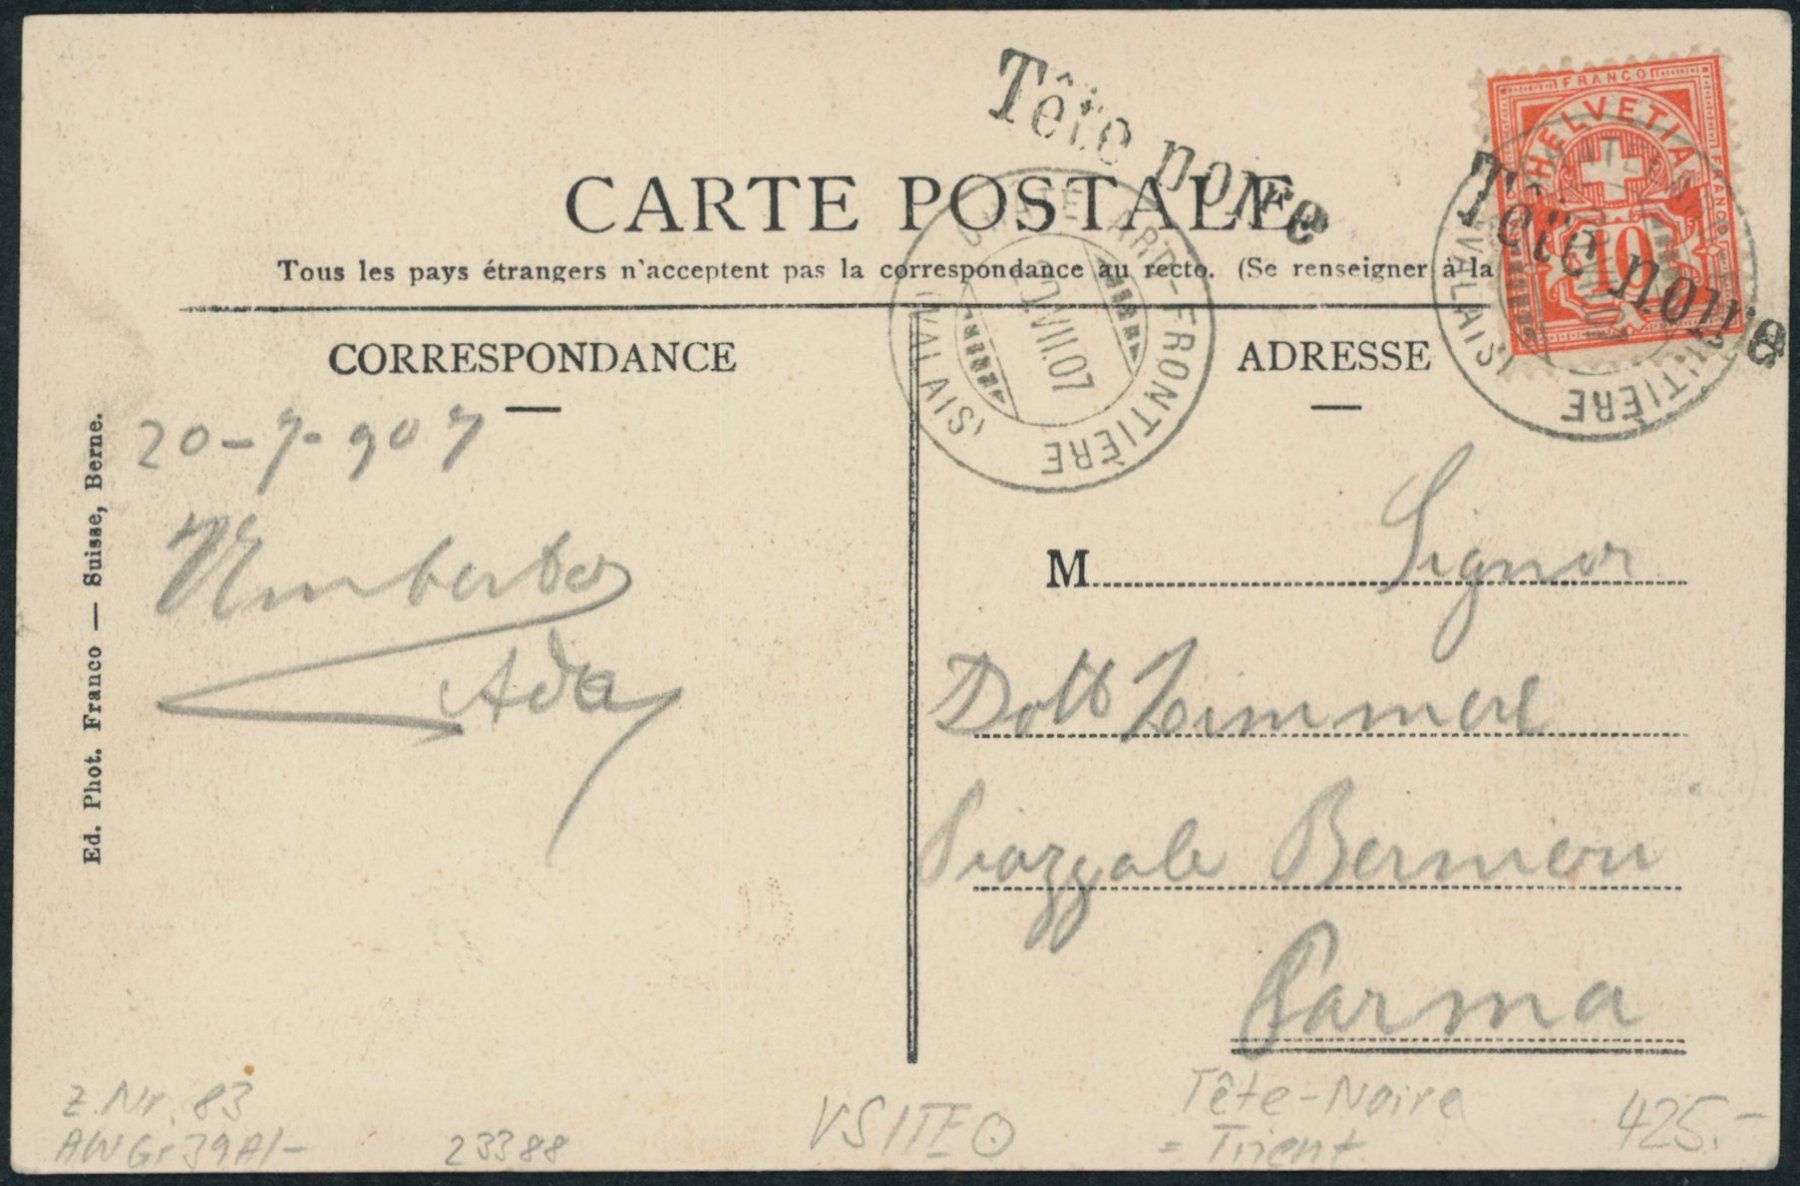 Tête noire
FRANCO
HELVETIA
FRANCO
10
Tête noire
CARTE POSTALE
Tous les pays étrangers n'acceptent pas la correspondance au recto. (Se renseigner à la
FRONTIÈRE
(VALAIS)
20.VII.07
TIÈRE
(VALAIS)
CORRESPONDANCE
ADRESSE
20-7-907
Umberto
Ada
M Signor
Dott
Piazzale
Parma
Ed. Phot. Franco — Suisse, Berne.
Z. Nr. 83
AW Gr 39A/-
23388
Tête-Noire
= Trient
425.-